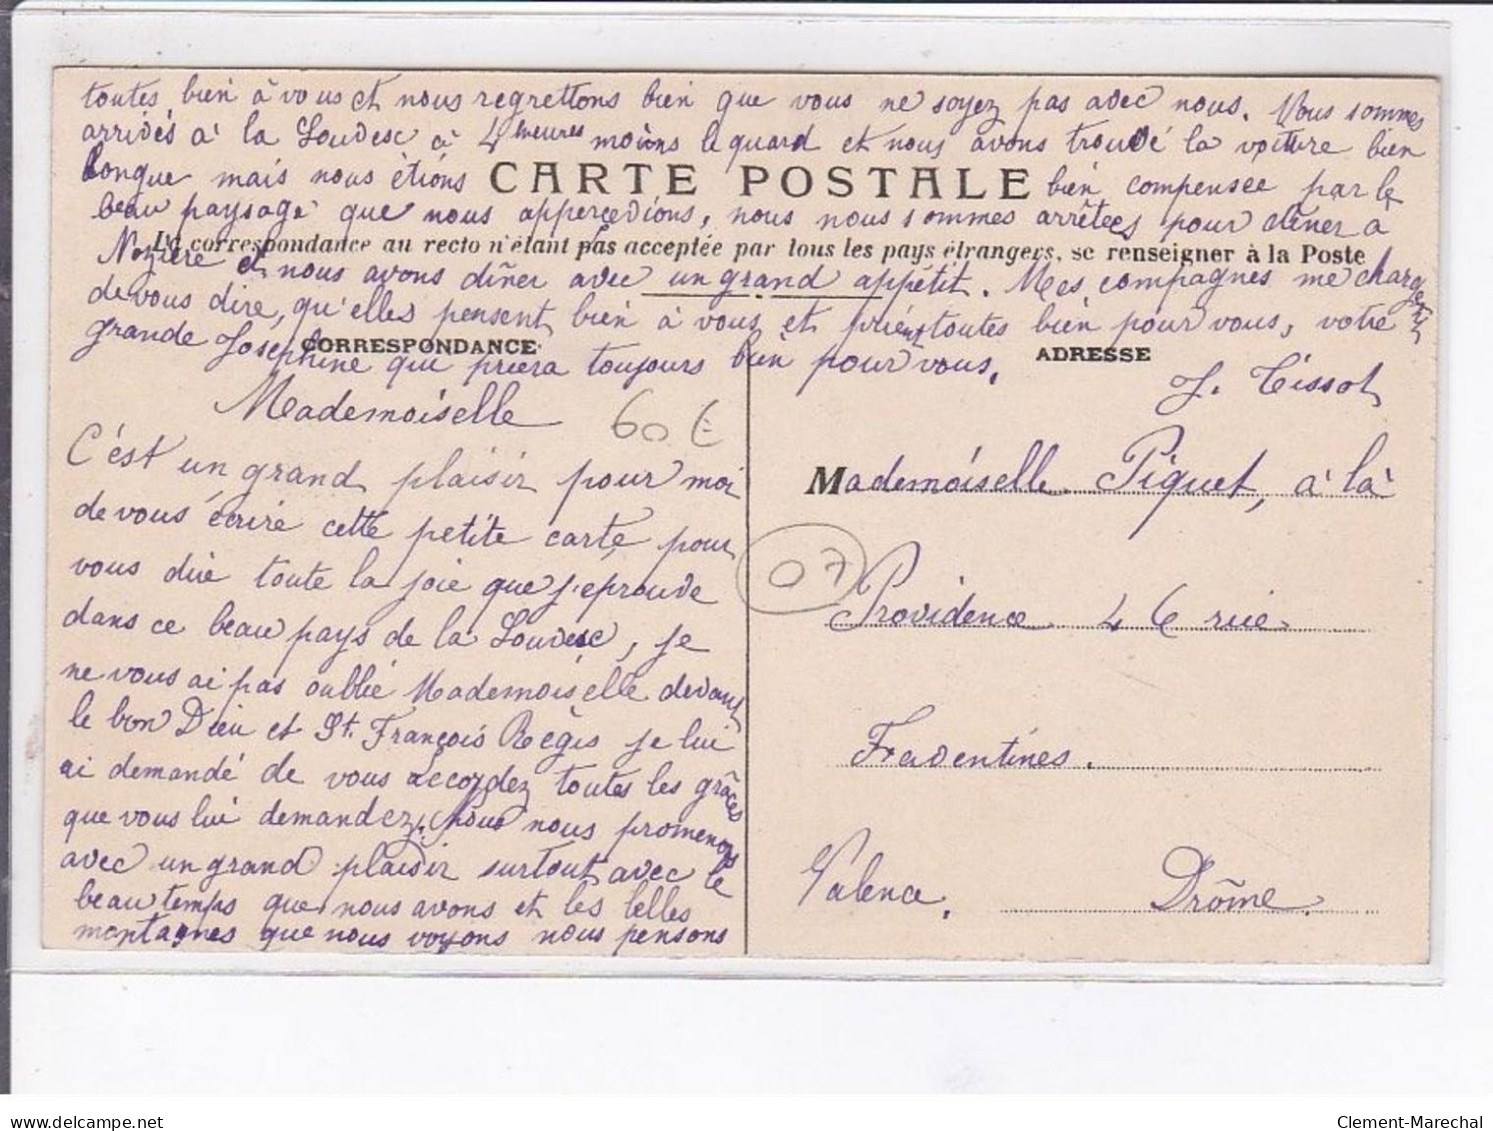 toutes bien à vous et nous regrettons bien que vous ne soyez pas avec nous. Nous sommes
arrivés à la Louvesc à 4 heures moins le quard et nous avons trouvé la voiture bien
longue mais nous étions CARTE POSTALE bien compensée par le
beau paysage que nous appercevions, nous nous sommes arrêtées pour dîner à
La correspondance au recto n'étant pas acceptée par tous les pays étrangers, se renseigner à la Poste
Nozière et nous avons dîner avec un grand appétit. Mes compagnes me chargent
de vous dire, qu'elles pensent bien à vous et prient toutes bien pour vous, votre
grande Josephine qui priera toujours bien pour vous.
CORRESPONDANCE
ADRESSE
J. Tissot
Mademoiselle
60 €
C'est un grand plaisir pour moi
de vous écrire cette petite carte pour
vous dire toute la joie que j'éprouve
dans ce beau pays de la Louvesc, je
ne vous ai pas oublié Mademoiselle devant
le bon Dieu et St. François Régis je lui
ai demandé de vous accordez toutes les grâces
que vous lui demandez. Nous nous promenons
avec un grand plaisir surtout avec le
beau temps que nous avons et les belles
montagnes que nous voyons nous pensons
07
Mademoiselle Piquet, à la
Providence 46 rue
Faventines.
Valence. Drôme.
delcampe.net
Clement-Marechal